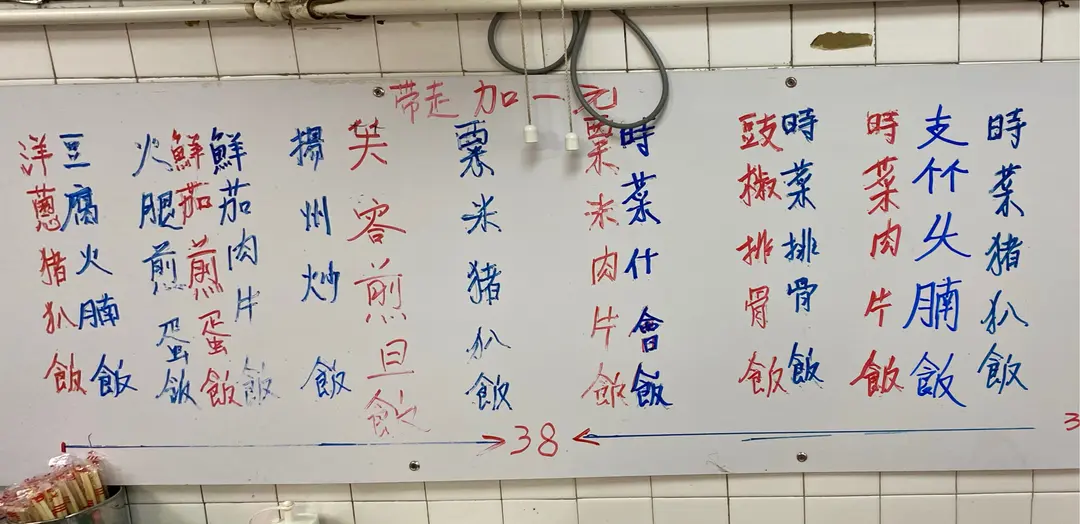 带走 加一元
時菜猪扒飯
支竹火腩飯
時菜肉片飯
時菜排骨飯
豉椒排骨飯
時菜什會飯
粟米肉片飯
粟米猪扒飯
芙容煎旦飯
揚州炒飯
鮮茄肉片飯
鮮茄煎蛋飯
火腿煎蛋飯
豆腐火腩飯
洋蔥猪扒飯
38